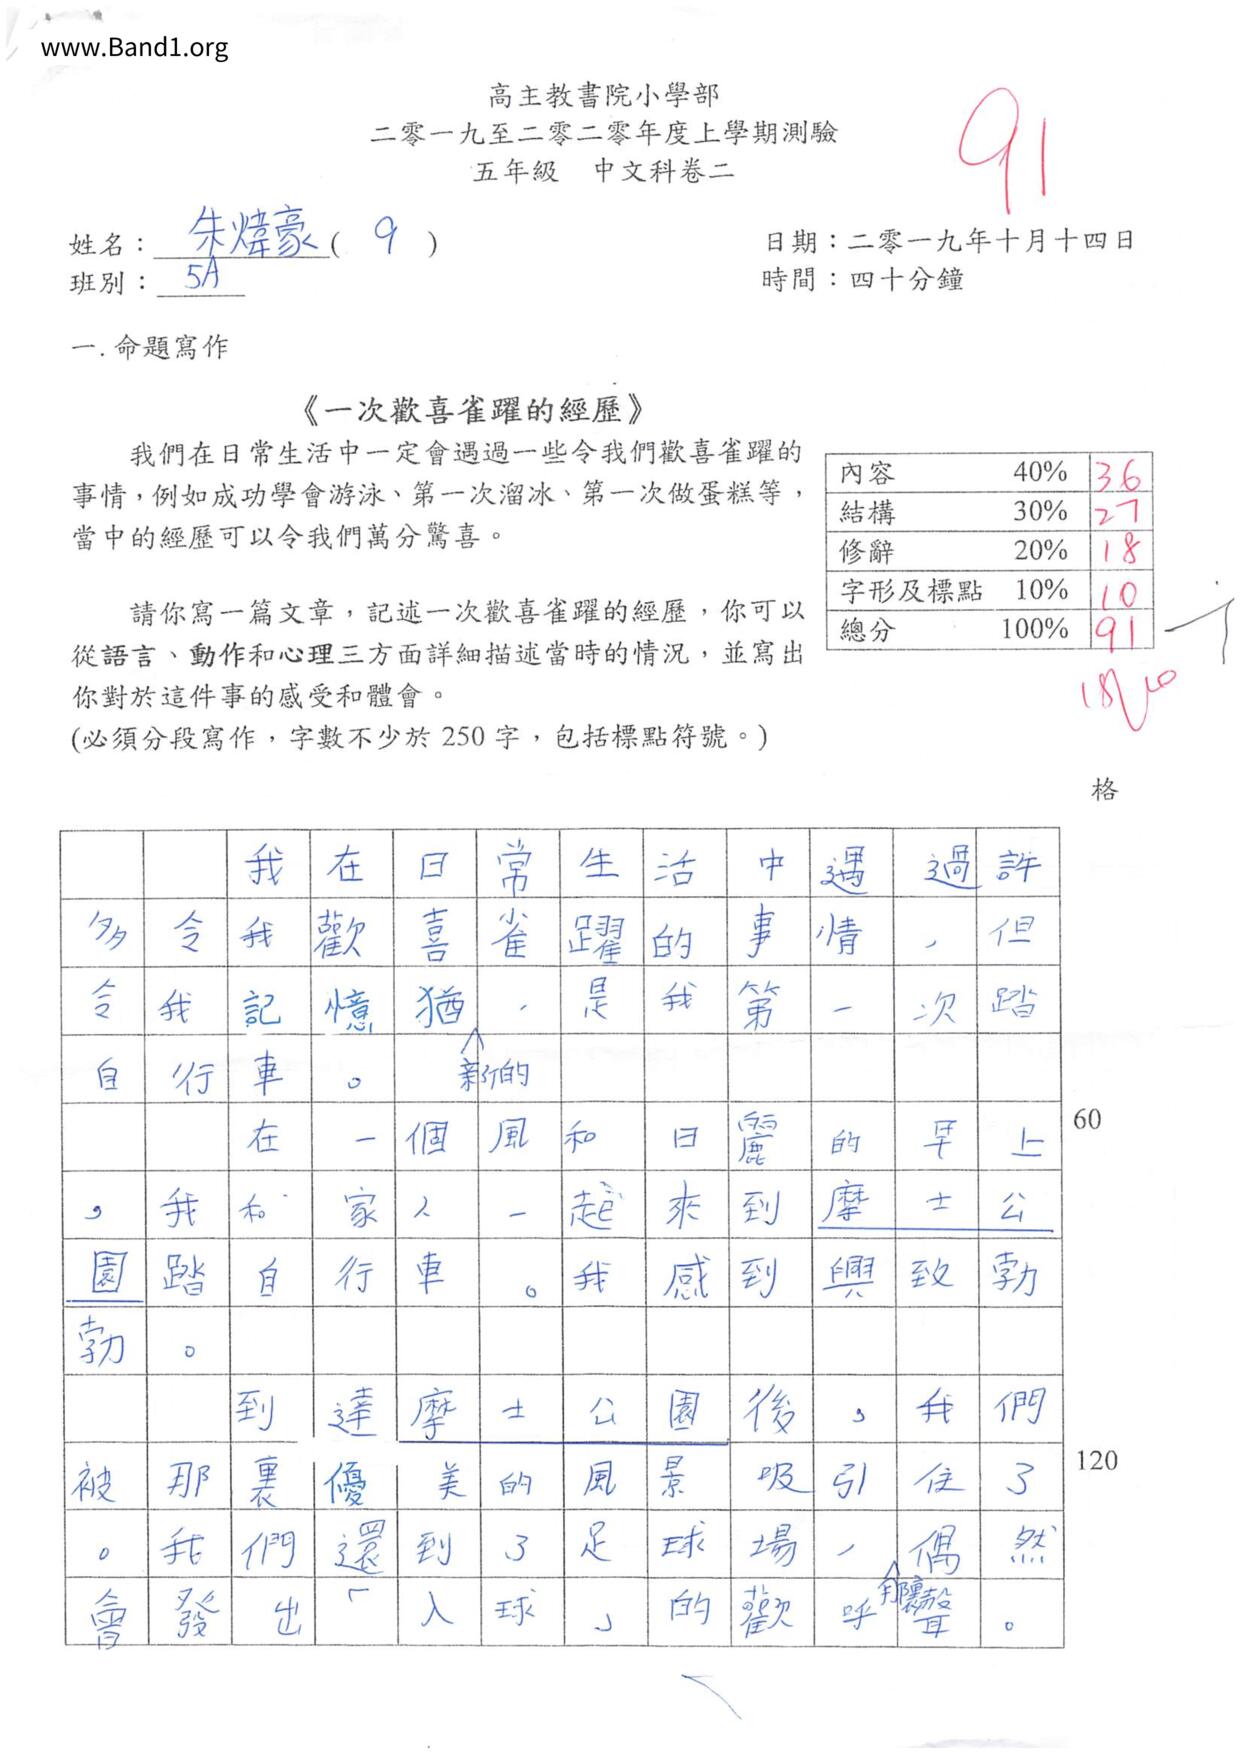 www.Band1.org
高主教書院小學部
二零一九至二零二零年度上學期測驗
五年級 中文科卷二
91
姓名：朱煒豪( 9 )
日期：二零一九年十月十四日
班別：5A
時間：四十分鐘
一. 命題寫作
《一次歡喜雀躍的經歷》
我們在日常生活中一定會遇過一些令我們歡喜雀躍的
事情，例如成功學會游泳、第一次溜冰、第一次做蛋糕等，
當中的經歷可以令我們萬分驚喜。
請你寫一篇文章，記述一次歡喜雀躍的經歷，你可以
從語言、動作和心理三方面詳細描述當時的情況，並寫出
你對於這件事的感受和體會。
(必須分段寫作，字數不少於 250 字，包括標點符號。)
內容 40% 36
結構 30% 27
修辭 20% 18
字形及標點 10% 10
總分 100% 91
18/10
格
我在日常生活中遇過許
多令我歡喜雀躍的事情，但
令我記憶猶，是我第一次踏
新的
自行車。
在一個風和日麗的早上
60
，我和家人一起來到摩士公
園踏自行車。我感到興致勃
勃。
到達摩士公園後，我們
被那裏優美的風景吸引住了
120
。我們還到了足球場，偶然
那裏
會發出「入球」的歡呼聲。